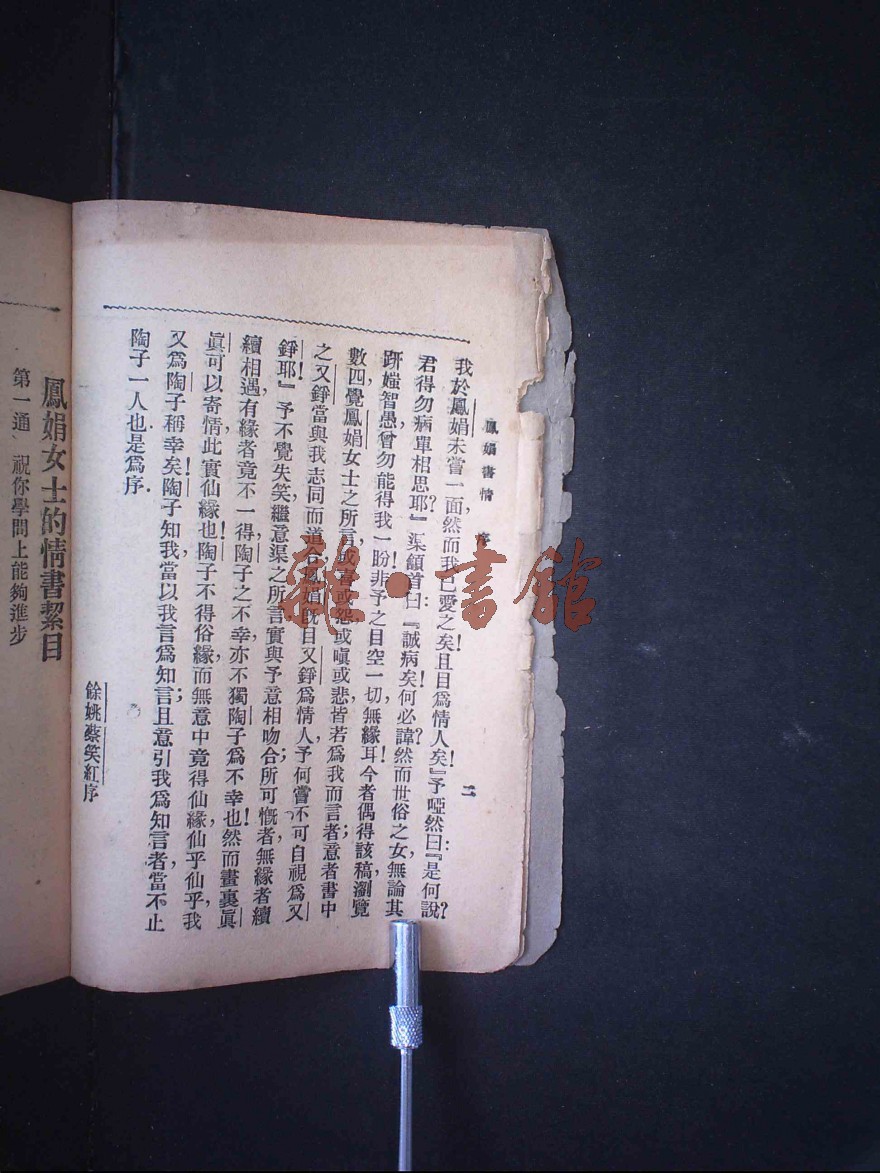 鳳娟書情 序 二
我於鳳娟未嘗一面，然而我已愛之矣！且目爲情人矣！』予啞然曰：『是何說？
君得勿病單相思耶？』渠頷首曰：『誠病矣！何必諱？然而世俗之女，無論其
妍媸智愚，曾勿能得我一盼，非予之目空一切，無緣耳！今者偶得該稿，瀏覽
數四，覺鳳娟女士之所言，或喜或怨，或嗔或悲，皆若爲我而言者；意者書中
之又錚，當與我志同而道合，鳳娟旣目又錚爲情人，予何嘗不可自視爲又
錚耶！』予不覺失笑，繼意渠之所言，實與予意相吻合；所可慨者，無緣者續
續相遇，有緣者竟不一得，陶子之不幸，亦不獨陶子爲不幸也！然而畫裏眞
眞，可以寄情，此實仙緣也！陶子不得俗緣，而無意中竟得仙緣，仙乎仙乎，我
又爲陶子稱幸矣！陶子知我，當以我言爲知言；且意引我爲知言者，當不止
陶子一人也，是爲序．
餘姚蔡笑紅序
鳳娟女士的情書絜目
第一通、祝你學問上能夠進步
雜·書館